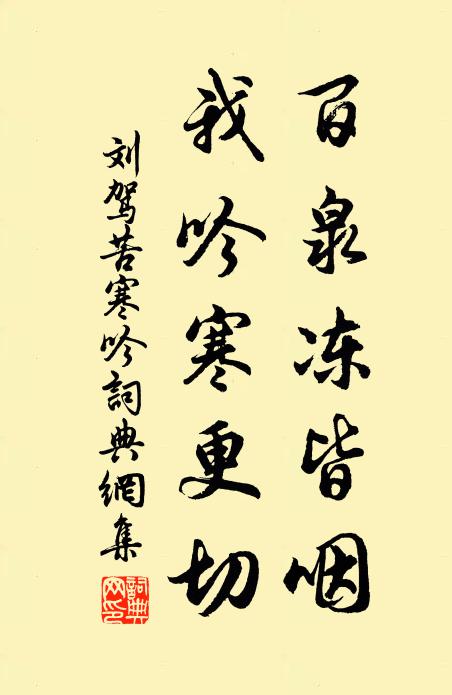 百泉冻皆咽
我吟寒更切
刘驾苦寒吟詞典網集
詞典網印